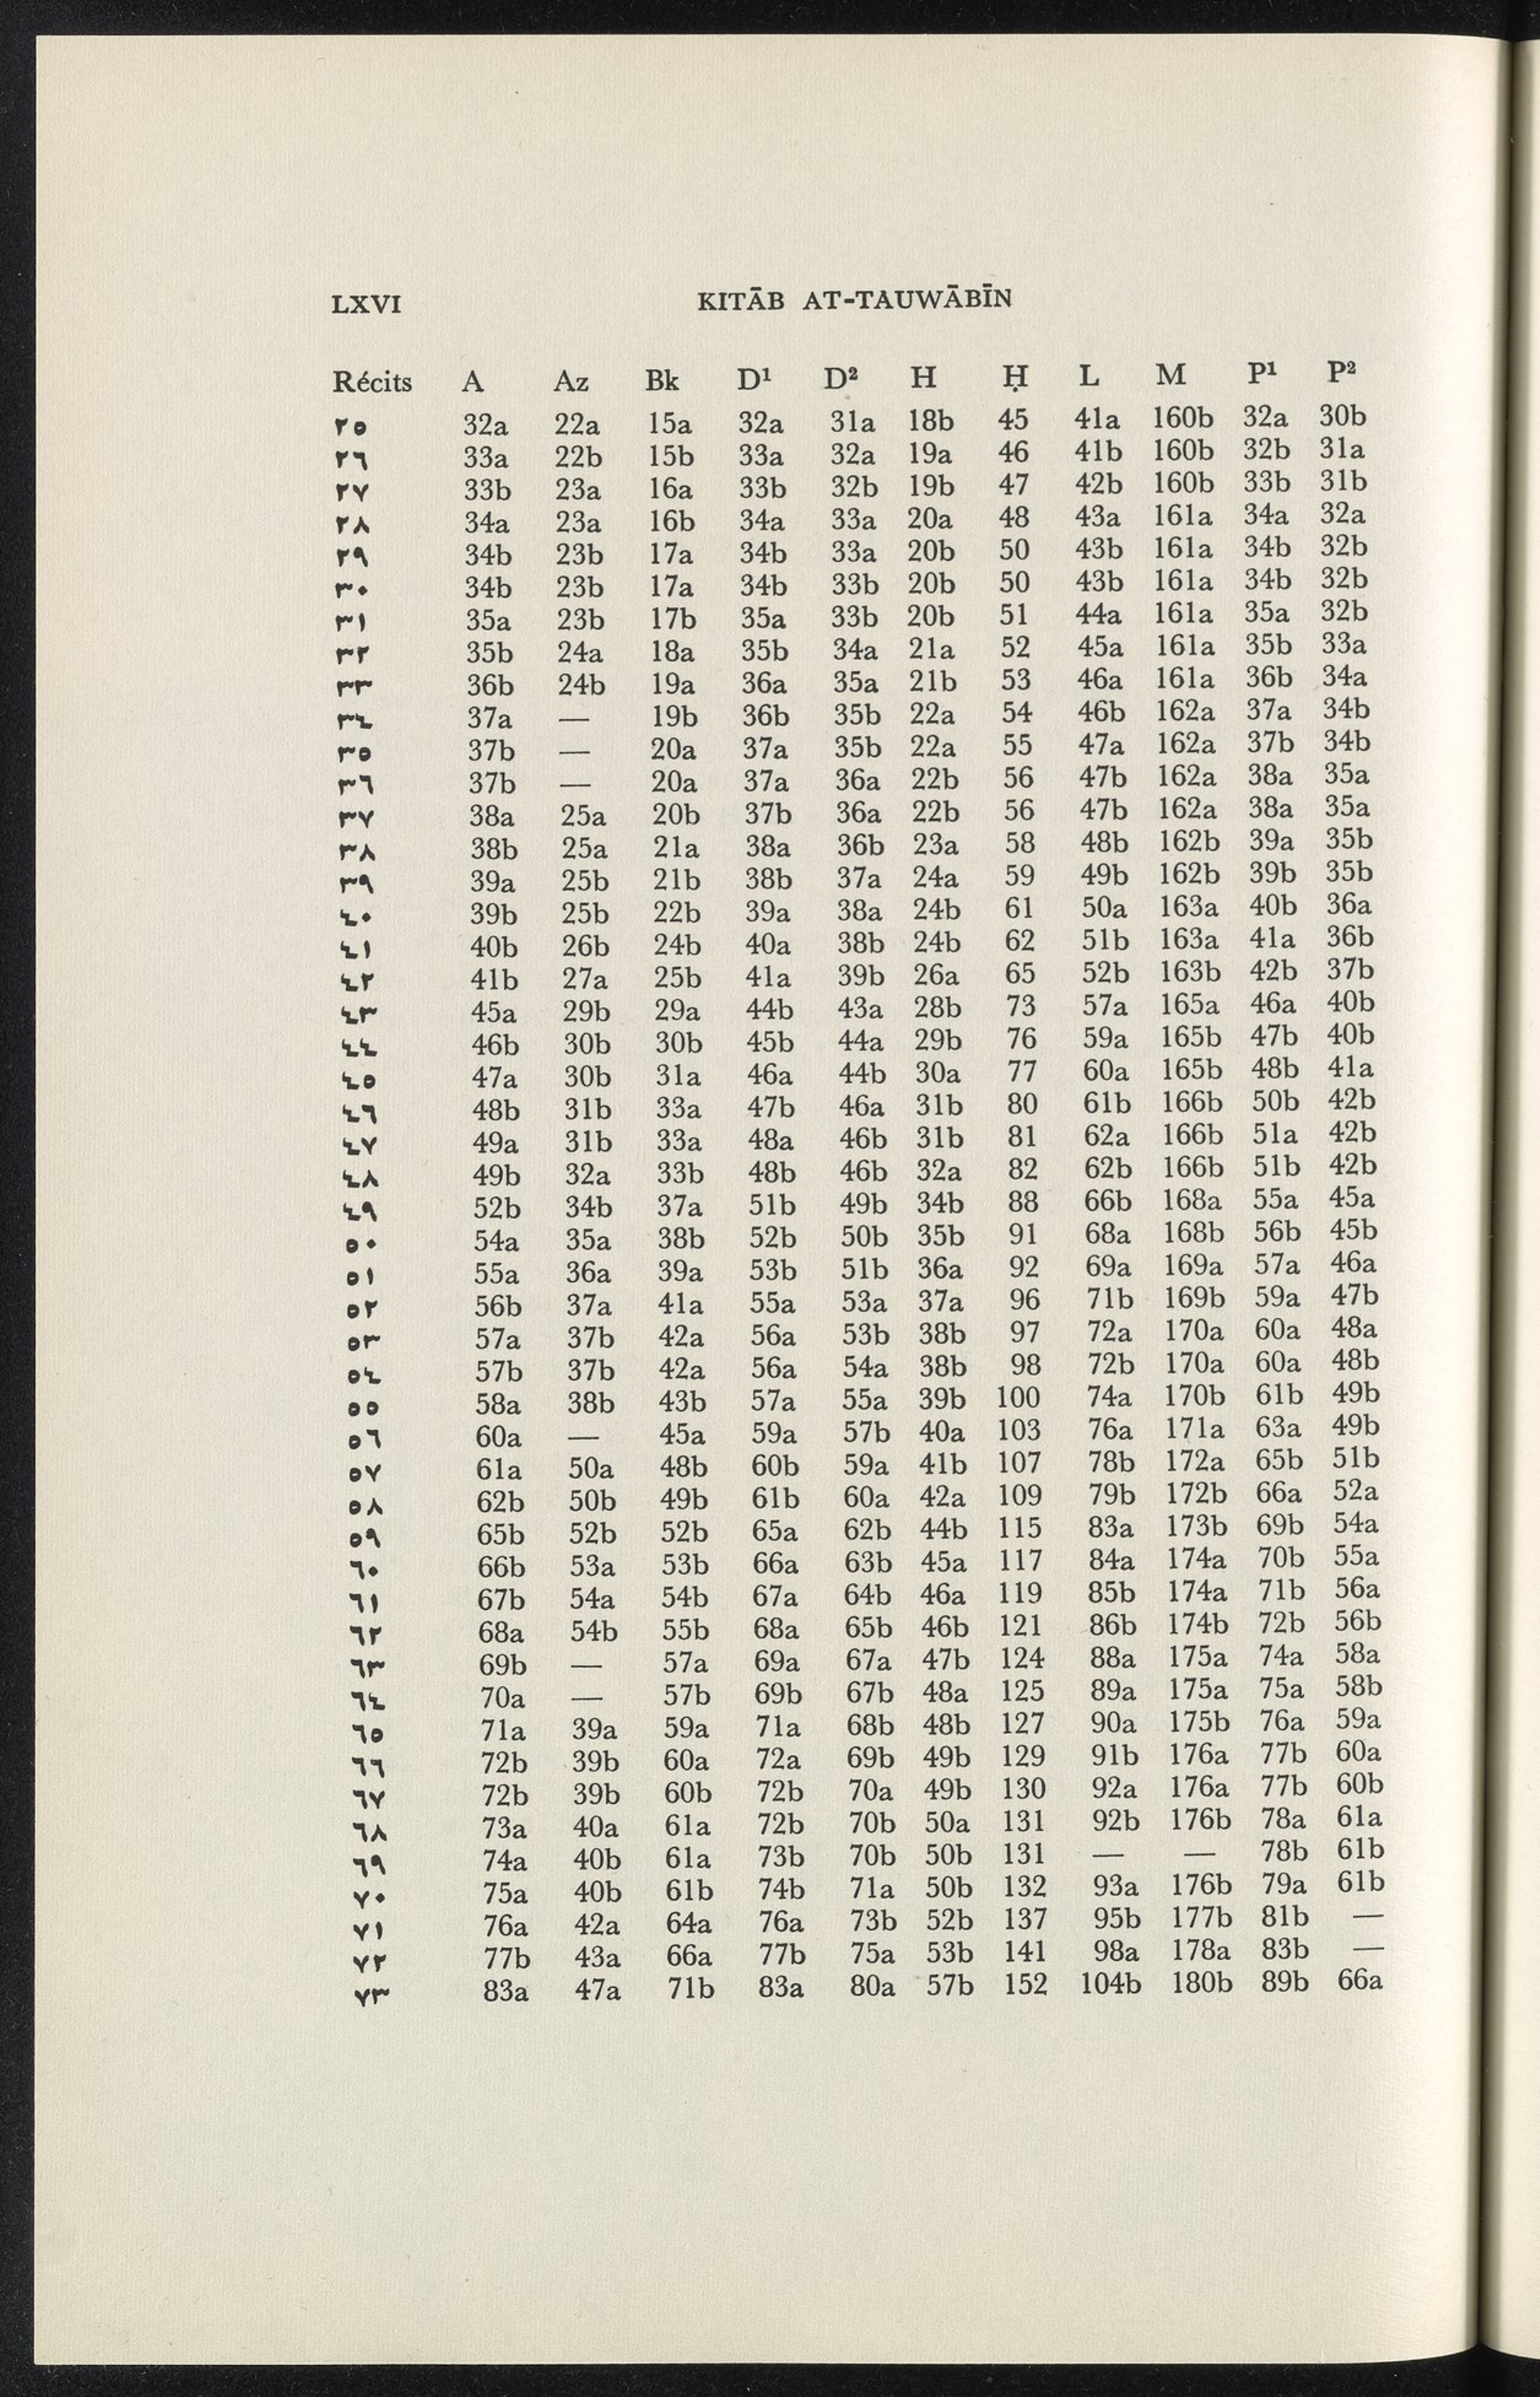 LXVI KITĀB AT-TAUWĀBĪN
Récits A Az Bk D¹ D² H Ḥ L M P¹ P²
٢٥ 32a 22a 15a 32a 31a 18b 45 41a 160b 32a 30b
٢٦ 33a 22b 15b 33a 32a 19a 46 41b 160b 32b 31a
٢٧ 33b 23a 16a 33b 32b 19b 47 42b 160b 33b 31b
٢٨ 34a 23a 16b 34a 33a 20a 48 43a 161a 34a 32a
٢٩ 34b 23b 17a 34b 33a 20b 50 43b 161a 34b 32b
٣٠ 34b 23b 17a 34b 33b 20b 50 43b 161a 34b 32b
٣١ 35a 23b 17b 35a 33b 20b 51 44a 161a 35a 32b
٣٢ 35b 24a 18a 35b 34a 21a 52 45a 161a 35b 33a
٣٣ 36b 24b 19a 36a 35a 21b 53 46a 161a 36b 34a
٣٤ 37a — 19b 36b 35b 22a 54 46b 162a 37a 34b
٣٥ 37b — 20a 37a 35b 22a 55 47a 162a 37b 34b
٣٦ 37b — 20a 37a 36a 22b 56 47b 162a 38a 35a
٣٧ 38a 25a 20b 37b 36a 22b 56 47b 162a 38a 35a
٣٨ 38b 25a 21a 38a 36b 23a 58 48b 162b 39a 35b
٣٩ 39a 25b 21b 38b 37a 24a 59 49b 162b 39b 35b
٤٠ 39b 25b 22b 39a 38a 24b 61 50a 163a 40b 36a
٤١ 40b 26b 24b 40a 38b 24b 62 51b 163a 41a 36b
٤٢ 41b 27a 25b 41a 39b 26a 65 52b 163b 42b 37b
٤٣ 45a 29b 29a 44b 43a 28b 73 57a 165a 46a 40b
٤٤ 46b 30b 30b 45b 44a 29b 76 59a 165b 47b 40b
٤٥ 47a 30b 31a 46a 44b 30a 77 60a 165b 48b 41a
٤٦ 48b 31b 33a 47b 46a 31b 80 61b 166b 50b 42b
٤٧ 49a 31b 33a 48a 46b 31b 81 62a 166b 51a 42b
٤٨ 49b 32a 33b 48b 46b 32a 82 62b 166b 51b 42b
٤٩ 52b 34b 37a 51b 49b 34b 88 66b 168a 55a 45a
٥٠ 54a 35a 38b 52b 50b 35b 91 68a 168b 56b 45b
٥١ 55a 36a 39a 53b 51b 36a 92 69a 169a 57a 46a
٥٢ 56b 37a 41a 55a 53a 37a 96 71b 169b 59a 47b
٥٣ 57a 37b 42a 56a 53b 38b 97 72a 170a 60a 48a
٥٤ 57b 37b 42a 56a 54a 38b 98 72b 170a 60a 48b
٥٥ 58a 38b 43b 57a 55a 39b 100 74a 170b 61b 49b
٥٦ 60a — 45a 59a 57b 40a 103 76a 171a 63a 49b
٥٧ 61a 50a 48b 60b 59a 41b 107 78b 172a 65b 51b
٥٨ 62b 50b 49b 61b 60a 42a 109 79b 172b 66a 52a
٥٩ 65b 52b 52b 65a 62b 44b 115 83a 173b 69b 54a
٦٠ 66b 53a 53b 66a 63b 45a 117 84a 174a 70b 55a
٦١ 67b 54a 54b 67a 64b 46a 119 85b 174a 71b 56a
٦٢ 68a 54b 55b 68a 65b 46b 121 86b 174b 72b 56b
٦٣ 69b — 57a 69a 67a 47b 124 88a 175a 74a 58a
٦٤ 70a — 57b 69b 67b 48a 125 89a 175a 75a 58b
٦٥ 71a 39a 59a 71a 68b 48b 127 90a 175b 76a 59a
٦٦ 72b 39b 60a 72a 69b 49b 129 91b 176a 77b 60a
٦٧ 72b 39b 60b 72b 70a 49b 130 92a 176a 77b 60b
٦٨ 73a 40a 61a 72b 70b 50a 131 92b 176b 78a 61a
٦٩ 74a 40b 61a 73b 70b 50b 131 — — 78b 61b
٧٠ 75a 40b 61b 74b 71a 50b 132 93a 176b 79a 61b
٧١ 76a 42a 64a 76a 73b 52b 137 95b 177b 81b —
٧٢ 77b 43a 66a 77b 75a 53b 141 98a 178a 83b —
٧٣ 83a 47a 71b 83a 80a 57b 152 104b 180b 89b 66a